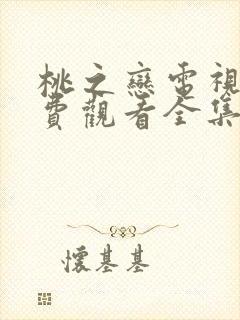 桃之戀電視
費觀看全集
懷基基